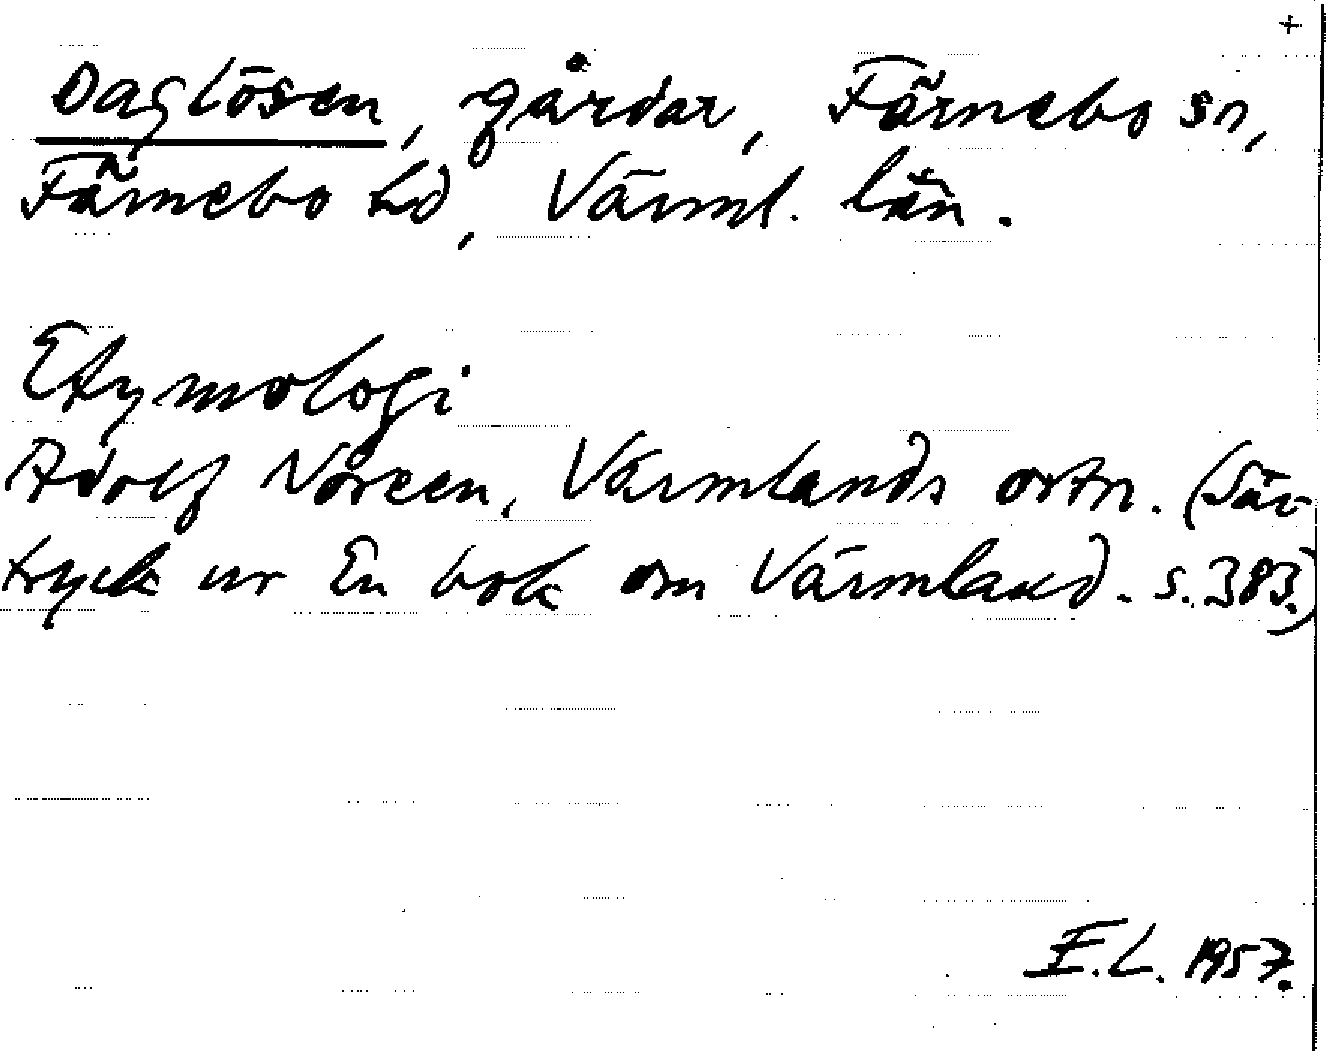 +
Daglösen, gårdar, Färnebo sn,
Färnebo hd, Värml. län.
Etymologi
Adolf Noreen, Värmlands ortn. (Sär-
tryck ur En bok om Värmland. s. 383.)
E.L. 1957.